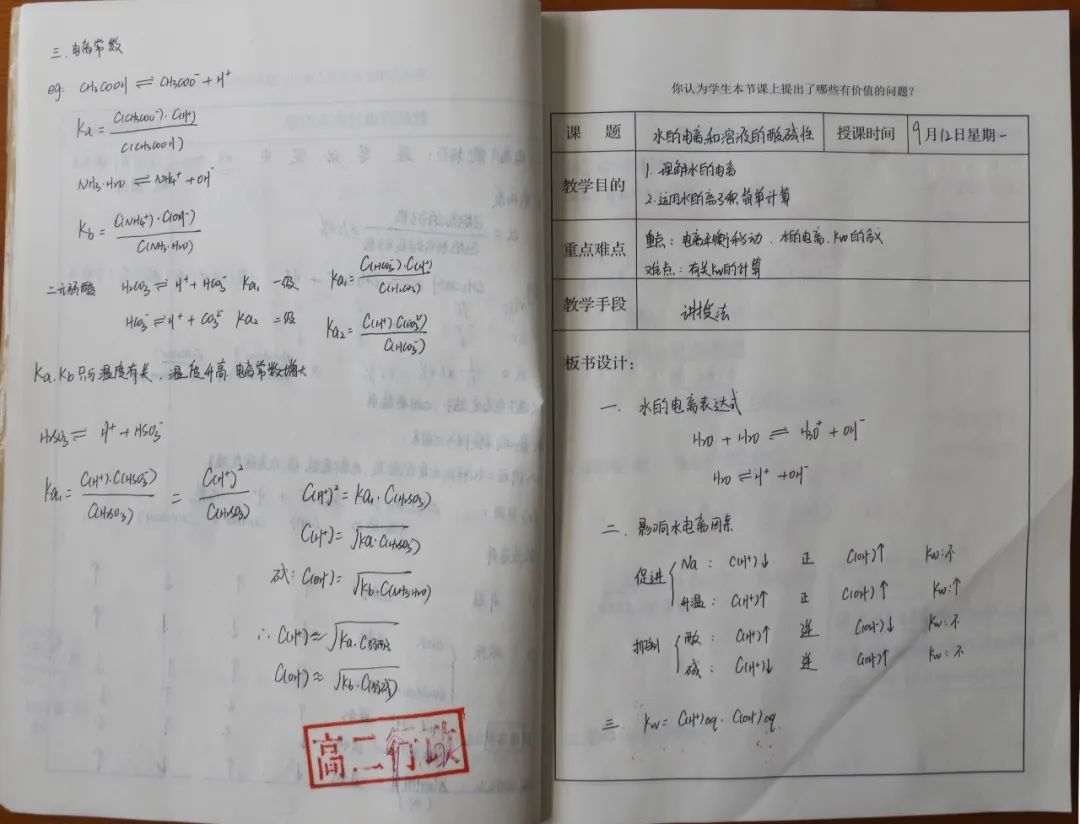 三、电离常数
eg: CH₃COOH ⇌ CH₃COO⁻ + H⁺
Ka = C(CH₃COO⁻)·C(H⁺) / C(CH₃COOH)
NH₃·H₂O ⇌ NH₄⁺ + OH⁻
Kb = C(NH₄⁺)·C(OH⁻) / C(NH₃·H₂O)
二元弱酸 H₂CO₃ ⇌ H⁺ + HCO₃⁻ Ka₁ 一级 Ka₁ = C(HCO₃⁻)·C(H⁺) / C(H₂CO₃)
HCO₃⁻ ⇌ H⁺ + CO₃²⁻ Ka₂ 二级 Ka₂ = C(H⁺)·C(CO₃²⁻) / C(HCO₃⁻)
Ka、Kb只与温度有关,温度升高,电离常数增大
H₂SO₃ ⇌ H⁺ + HSO₃⁻
Ka₁ = C(H⁺)·C(HSO₃⁻) / C(H₂SO₃) = C(H⁺)² / C(H₂SO₃)
C(H⁺)² = Ka₁·C(H₂SO₃)
C(H⁺) = √Ka·C(H₂SO₃)
碱: C(OH⁻) = √Kb·C(NH₃·H₂O)
∴ C(H⁺) ≈ √Ka·C(弱酸)
C(OH⁻) ≈ √Kb·C(弱碱)
高二行政
你认为学生本节课上提出了哪些有价值的问题?
课 题 水的电离和溶液的酸碱性 授课时间 9月12日星期一
教学目的
1. 理解水的电离
2. 运用水的离子积简单计算
重点难点
重点:电离平衡移动、水的电离、Kw的含义
难点:有关Kw的计算
教学手段 讲授法
板书设计:
一、水的电离表达式
H₂O + H₂O ⇌ H₃O⁺ + OH⁻
H₂O ⇌ H⁺ + OH⁻
二、影响水电离因素
促进
Na: C(H⁺)↓ 正 C(OH⁻)↑ Kw:不
升温: C(H⁺)↑ 正 C(OH⁻)↑ Kw:↑
抑制
酸: C(H⁺)↑ 逆 C(OH⁻)↓ Kw:不
碱: C(H⁺)↓ 逆 C(OH⁻)↑ Kw:不
三 Kw = C(H⁺)aq · C(OH⁻)aq